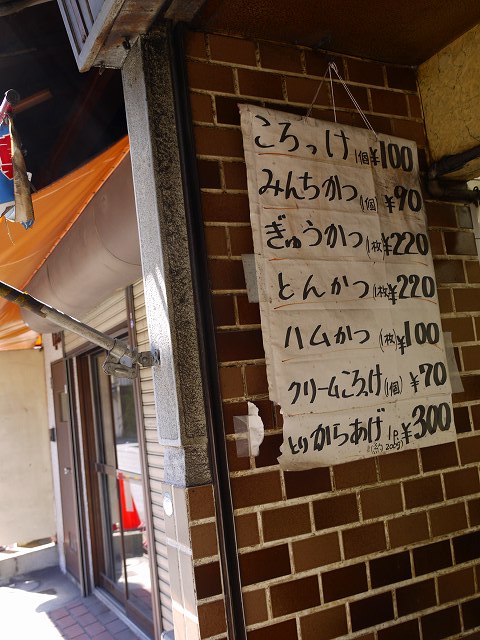 ころっけ (1個) ¥100
みんちかつ (1個) ¥90
ぎゅうかつ (1枚) ¥220
とんかつ (1枚) ¥220
ハムかつ (1枚) ¥100
クリームころっけ (1個) ¥70
とりからあげ (1P 約200g) ¥300